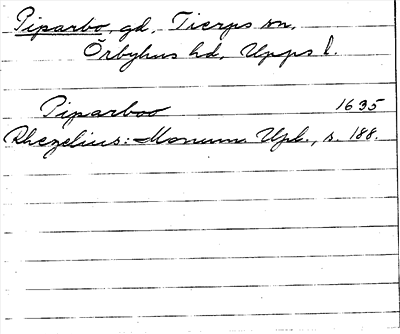 Piparbo, gd, Tierps sn,
Örbyhus hd, Upps l.
Piparboo 1635
Rhezelius: Monum Upl., s. 188.